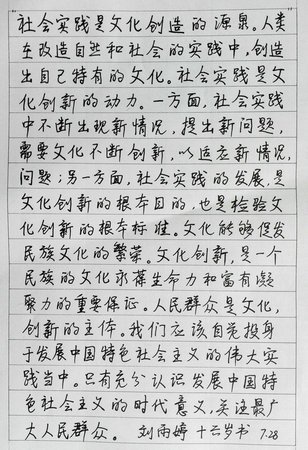 社会实践是文化创造的源泉。人类
在改造自然和社会的实践中，创造
出自己特有的文化。社会实践是文
化创新的动力。一方面，社会实践
中不断出现新情况，提出新问题，
需要文化不断创新，以适应新情况，
问题；另一方面，社会实践的发展，是
文化创新的根本目的，也是检验文
化创新的根本标准。文化能够促发
民族文化的繁荣。文化创新，是一个
民族的文化永葆生命力和富有凝
聚力的重要保证。人民群众是文化，
创新的主体。我们应该自觉投身
于发展中国特色社会主义的伟大实
践当中。只有充分认识发展中国特
色社会主义的时代意义，关注最广
大人民群众。 刘雨婷 十六岁书 7.28